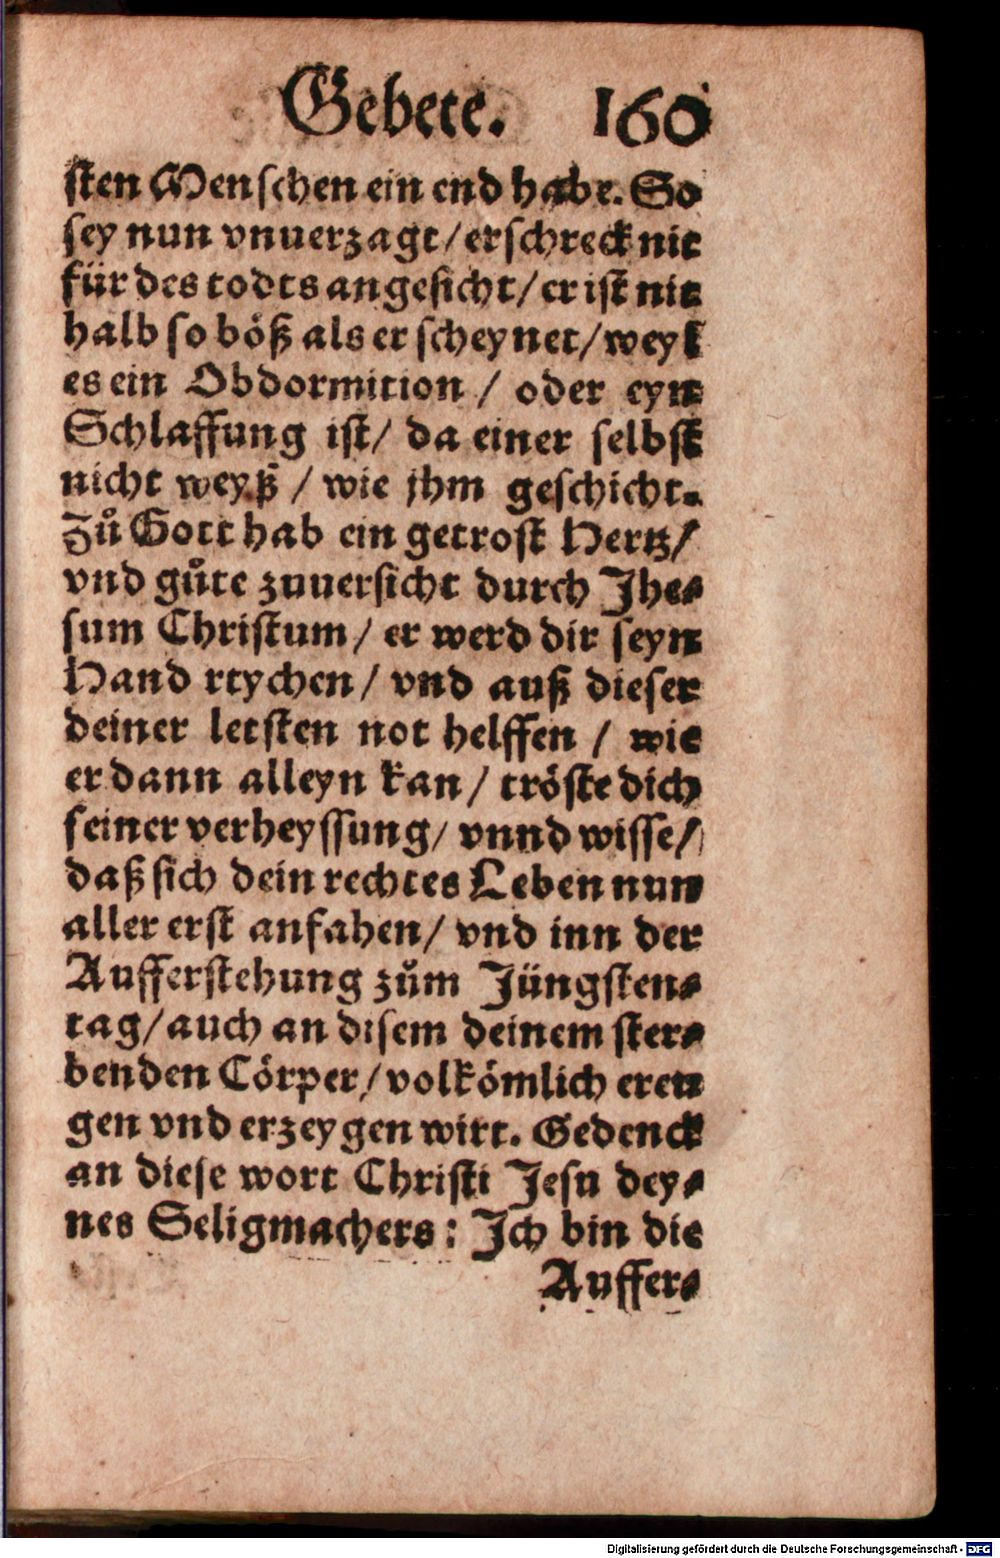 Gebete. 160
sten Menschen ein end habe. So
sey nun vnuerzagt / erschreck nit
für des todts angesicht / er ist nit
halb so böß als er scheynet / weyl
es ein Obdormition / oder eyn
Schlaffung ist / da einer selbst
nicht weyß / wie jhm geschicht.
Zů Gott hab ein getrost Hertz /
vnd gůte zuuersicht durch Jhe⸗
sum Christum / er werd dir seyn
Hand reychen / vnd auß dieser
deiner letsten not helffen / wie
er dann alleyn kan / tröste dich
seiner verheyssung / vnnd wisse /
daß sich dein rechtes Leben nun
aller erst anfahen / vnd inn der
Aufferstehung zům Jüngsten⸗
tag / auch an disem deinem ster⸗
benden Cörper / volkömlich ereu
gen vnd erzeygen wirt. Gedenck
an diese wort Christi Jesu dey⸗
nes Seligmachers : Jch bin die
Auffer⸗
Digitalisierung gefördert durch die Deutsche Forschungsgemeinschaft - DFG